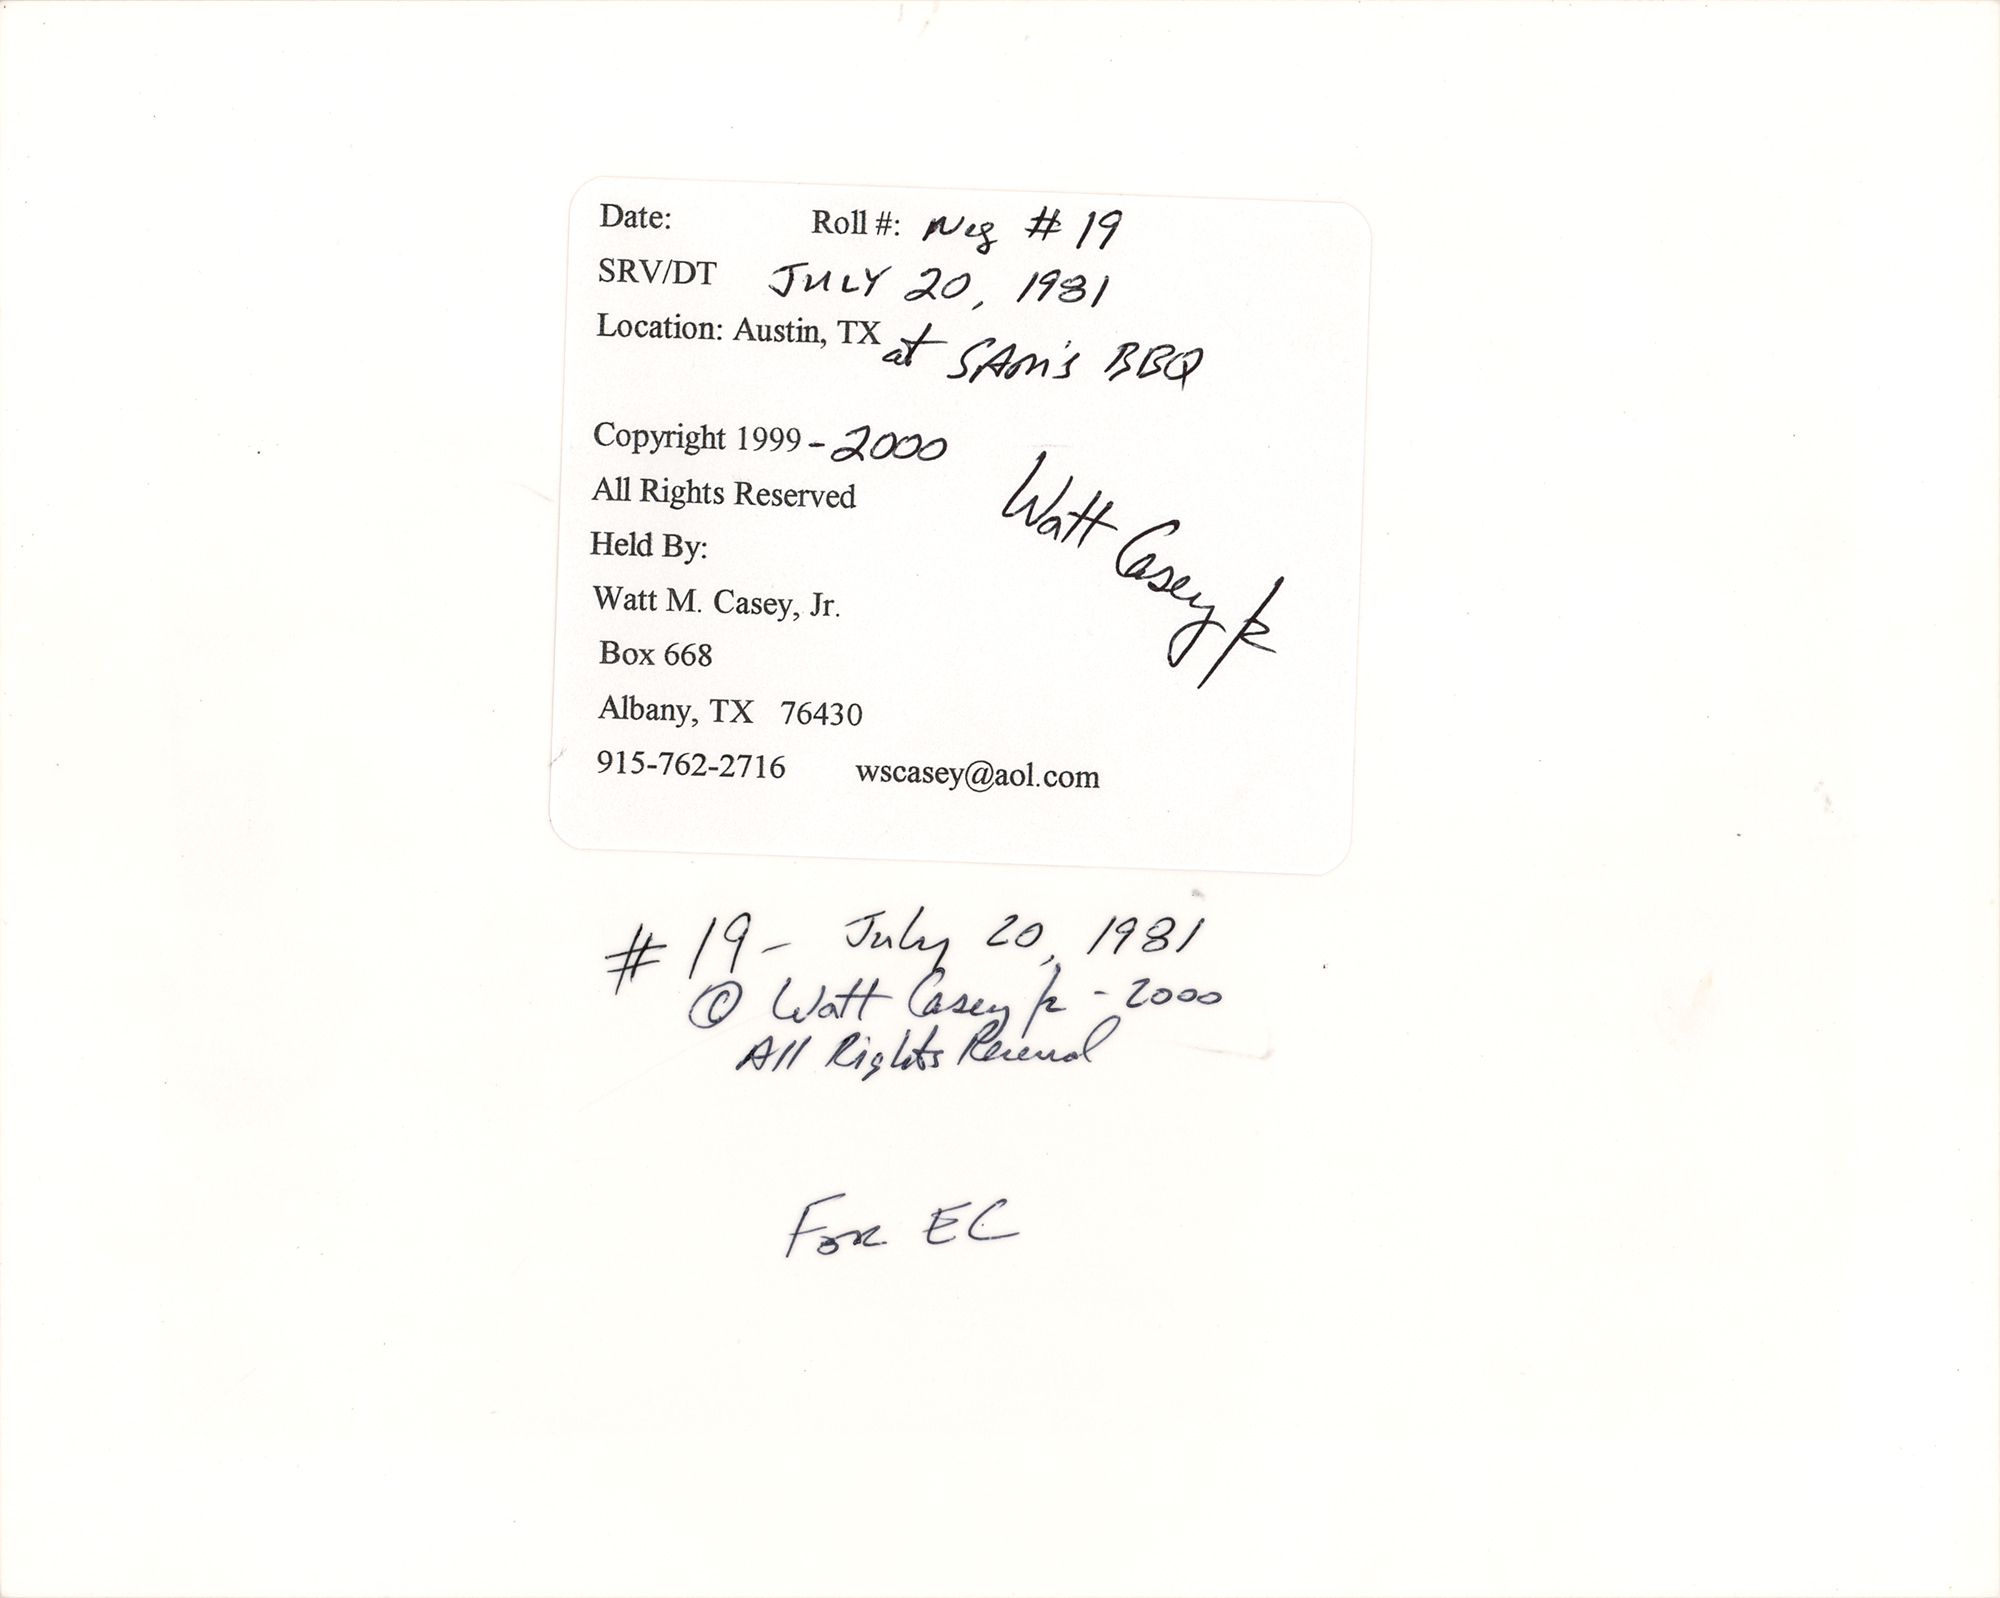 Date: Roll #: Neg # 19
SRV/DT JULY 20, 1981
Location: Austin, TX at SAM's BBQ
Copyright 1999 - 2000
All Rights Reserved
Held By:
Watt M. Casey, Jr.
Box 668
Albany, TX 76430
915-762-2716 wscasey@aol.com
Watt Casey Jr
# 19 - July 20, 1981
© Watt Casey Jr - 2000
All Rights Reserved
For EC